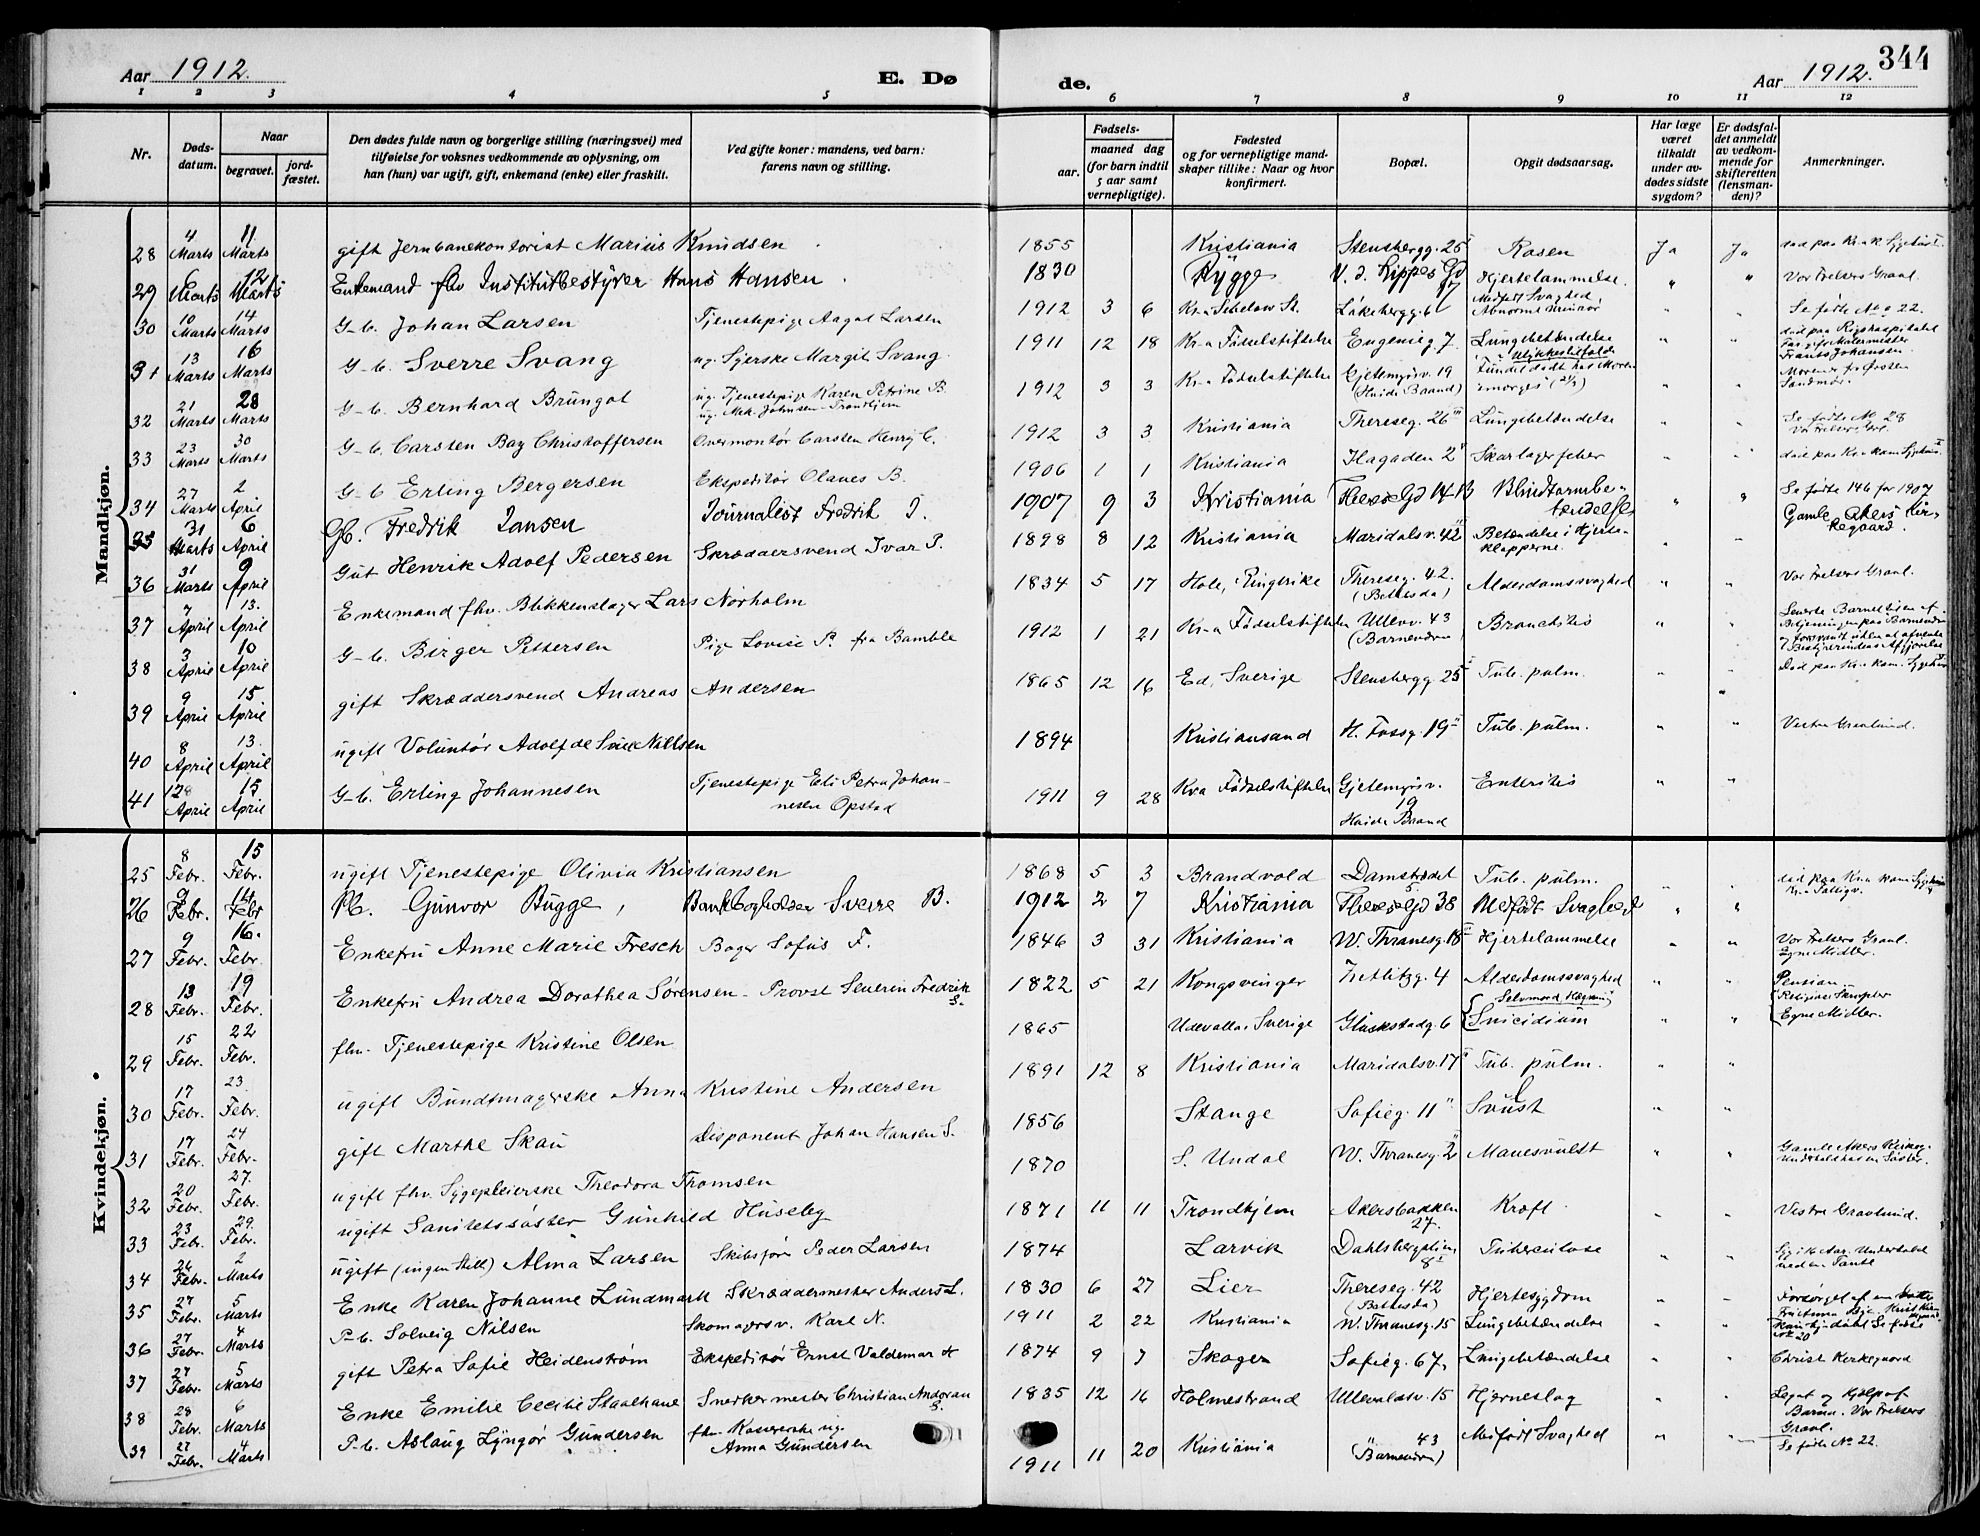 344
Aar 1912.
E. Dø
de.
Aar 1912.
1 2 3 4 5 6 7 8 9 10 11 12
Nr.
Døds-
datum.
Naar
begravet.
jord-
fæstet.
Den dødes fulde navn og borgerlige stilling (næringsvei) med
tilføielse for voksnes vedkommende av oplysning, om
han (hun) var ugift, gift, enkemand (enke) eller fraskilt.
Ved gifte koner: mandens, ved barn:
farens navn og stilling.
Fødsels-
aar.
maaned dag
(for barn indtil
5 aar samt
vernepligtige).
Fødested
og for vernepligtige mand-
skaper tillike: Naar og hvor
konfirmert.
Bopæl.
Opgit dødsaarsag.
Har læge
været
tilkaldt
under av-
dødes sidste
sygdom?
Er dødsfal-
det anmeldt
av vedkom-
mende for
skifteretten
(lensman-
den)?
Anmerkninger.
Mandkjøn.
28 4 Marts 11 Marts gift Jernbanekontorist Marius Knudsen 1855 Kristiania Stensbergg. 25 Rosen Ja Ja
29 6 Marts 12 Marts Enkemand fhv Institutbestyrer Hans Hansen 1830 Rygge V. d. Lippes Gd 17 Hjertelammelse. " " Vor Frelsers Gravl.
30 10 Marts 14 Marts G-b. Johan Larsen Tjenestepige Aagot Larsen 1912 3 6 Løkebergg. 6 Medfødt Svaghed " " Se fødte No 22.
31 13 Marts 16 Marts G-b. Sverre Svang ug. Syerske Margit Svang. 1911 12 18 Kr-a Fødselstiftelse Eugenieg. 7 Lungebetændelse " "
32 21 Marts 28 Marts G-b. Bernhard Brüngot ug. Tjenestepige Karen Petrine B. 1912 3 3 Kr-a Fødselstiftelse Gjetemyrsv. 19 " "
33 23 Marts 30 Marts G-b. Carsten Bay Christoffersen Overmontør Carsten Henry C. 1912 3 3 Kristiania Thereseg. 26 Lungebetændelse " " Se fødte No 28
34 27 Marts 2 April G-b Erling Bergersen Ekspeditør Olaves B. 1906 1 1 Kristiania Hagaden 2 Skarlagensfeber " "
35 31 Marts 6 April Gb. Fredrik Jansen Journalist Fredrik J. 1907 9 3 Kristiania Theresesgd 14 B Blindtarmbe-
tændelse " " Se fødte 146 for 1907
Gamle Akers Kir-
kegaard.
36 31 Marts 9 April Gut Henrik Adolf Pedersen Skræddersvend Ivar P. 1898 8 12 Kristiania Maridalsv. 42 Betændelse i Hjerte-
klapperne. " "
37 7 April 13. April Enkemand fhv. Blikkenslager Lars Norholm 1834 5 17 Hole, Ringerike Thereseg. 42.
(Bethesda) Alderdomssvaghed " " Vor Frelsers Gravl.
38 3 April 10 April G-b. Birger Pettersen Pige Lovise P. fra Bamble 1912 1 21 Kr-a Fødselstiftelse Ullevv. 43
(Barnevdren) Bronchitis " "
39 9 April 15 April gift Skræddersvend Andreas Andersen 1865 12 16 Ed, Sverige Stensbergg 25 Tub. pulm. " "
40 8 April 13. April ugift Voluntør Adolf de Sure Nillsen 1894 Kristiansand H. Fossg. 19 Tub. pulm. " " Vestre Gravlund.
41 12 April 15 April G-b. Erling Johannesen Tjenestepige Eli Petra Johan-
nesen Opstad 1911 9 28 Kr-a Fødselstiftelse Gjetemyrsv.
19 Enteritis " "
Kvindekjøn.
25 8 Febr. 15 Febr. ugift Tjenestepige Olivia Kristiansen 1868 5 3 Brandvold Damstrædet 5. Tub. pulm. " "
26 9 Febr. 14 Febr Pb. Gunvor Bugge, Bankbogholder Sverre B. 1912 2 7 Kristiania Theresegd 38 Medfødt Svaghed " "
27 9 Febr. 16. Febr. Enkefru Anne Marie Fresch Bager Sofus F. 1846 3 31 Kristiania W. Thranesg. 18 Hjertelammelse " " Vor Frelsers Gravl.
Egne Midler.
28 13 Febr. 19 Febr. Enkefru Andrea Dorothea Sørensen - Provst Severin Fredrik S. 1822 5 21 Kongsvinger Fredlitzg. 4 Alderdomssvaghed " " Pension
29 15 Febr. 22 Febr. fhv. Tjenestepige Kristine Olsen 1865 Udevalla, Sverige Glückstadg. 6 Suicidium " " Egne Midler.
30 17 Febr. 23. Febr. ugift Bundtmagerske Anna Kristine Andersen 1891 12 8 Kristiania Maridalsv. 17 Tub. pulm. " "
31 17 Febr. 24 Febr. gift Marthe Skau Disponent Johan Hansen S. 1856 Stange Sofieg. 11 " "
32 20 Febr. 27. Febr. ugift fhv. Sygepleierske Theodora Thomsen 1870 S. Undal W. Thranesg. 2 Mavesvulst " "
33 23 Febr. 29. Febr. ugift Sanitetssøster Gunhild Huseby 1871 11 11 Trondhjem Akersbakken
27. Kræft " " Vestre Gravlund.
34 26 Febr. 2 Marts ugift (ingen Still) Alma Larsen Skibsfører Peder Larsen 1874 Larvik Dahlsbergstien
8 Tuberculose " "
35 27 Febr. 5 Marts Enke Karen Johanne Lundmark Skræddermester Anders L. 1830 6 27 Lier Thereseg. 42
(Bethesda) Hjertesygdom " "
36 27 Febr. 4 Marts P-b. Solveig Nilsen Skomagersv. Karl N. 1911 2 22 Kristiania W. Thranesg. 15 Lungebetændelse " "
37 27 Febr. 5 Marts gift Petra Sofie Heidenstrøm Ekspeditør Ernst Valdemar H 1874 9 7 Skoger Sofieg. 67, Lungebetændelse " " Christ Kirkegaard
38 28 Febr. 6 Marts Enke Emilie Cecilie Staalhane Snedkermester Christian Andorau S. 1835 12 16 Holmestrand Ullevoldsv. 15 Hjerneslag " " Legat og Hjælp af
Børn. Vor Frelsers
Gravl.
39 27 Febr. 4 Marts P-b. Aslaug Lyngør Gundersen fhv. Kassererske ug.
Anna Gundersen 1911 11 20 Kristiania " 43
(Barnevdren) Medfødt Svaghed " " Se fødte No 22.